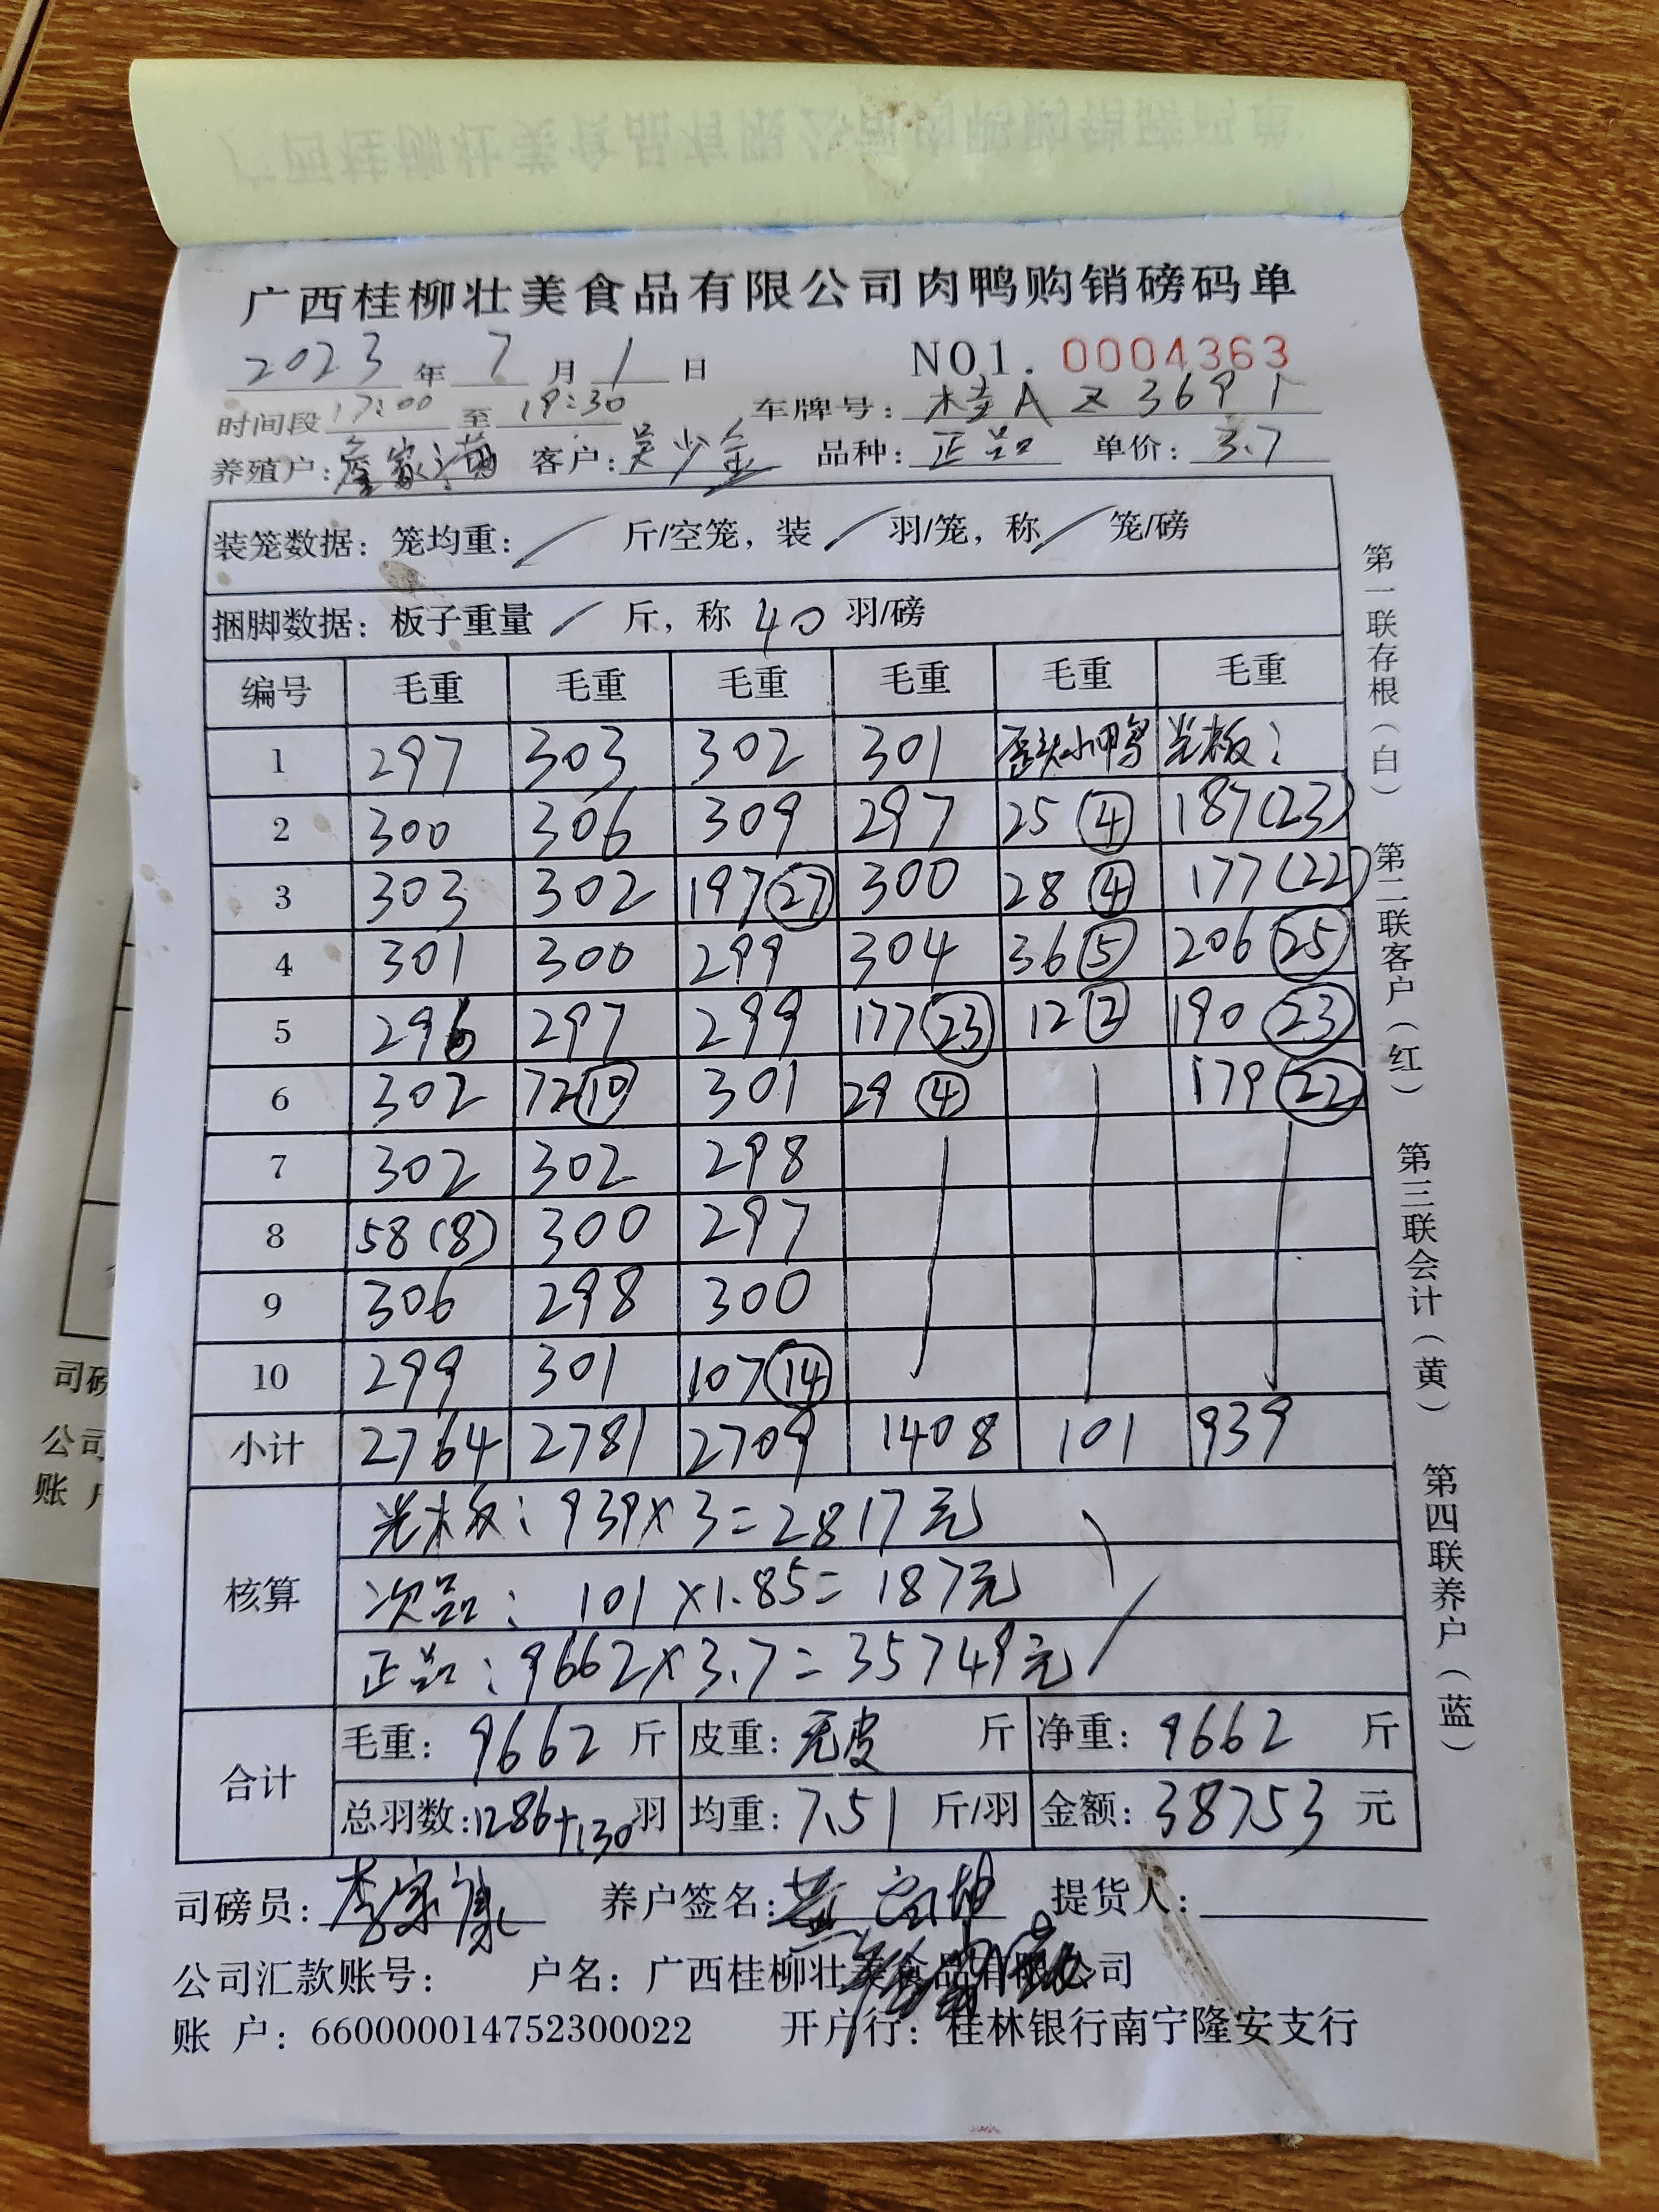 广西桂柳壮美食品有限公司肉鸭购销磅码单
2023年7月1日 NO1. 0004363
时间段17:00至19:30 车牌号:桂AZ3691
养殖户: 客户:吴少金 品种:正品 单价:3.7
装笼数据:笼均重:/斤/空笼,装/羽/笼,称/笼/磅
捆脚数据:板子重量/斤,称40羽/磅
编号 毛重 毛重 毛重 毛重 毛重 毛重
1 297 303 302 301 歪头小鸭 光板:
2 300 306 309 297 25④ 187(23)
3 303 302 197㉗ 300 28④ 177(22)
4 301 300 299 304 36⑤ 206㉕
5 296 297 299 177㉓ 12② 190㉓
6 302 72⑩ 301 29④ 179㉒
7 302 302 298
8 58(8) 300 297
9 306 298 300
10 299 301 107⑭
小计 2764 2781 2709 1408 101 939
核算
光板:939×3=2817元
次品:101×1.85=187元
正品:9662×3.7=35749元
合计
毛重:9662斤 皮重:无皮斤 净重:9662斤
总羽数:1286+130羽 均重:7.51斤/羽 金额:38753元
司磅员: 养户签名: 提货人:
公司汇款账号: 户名:广西桂柳壮美食品有限公司
账 户:660000014752300022 开户行:桂林银行南宁隆安支行
第一联存根(白) 第二联客户(红) 第三联会计(黄) 第四联养户(蓝)
司磅
公司
账 户